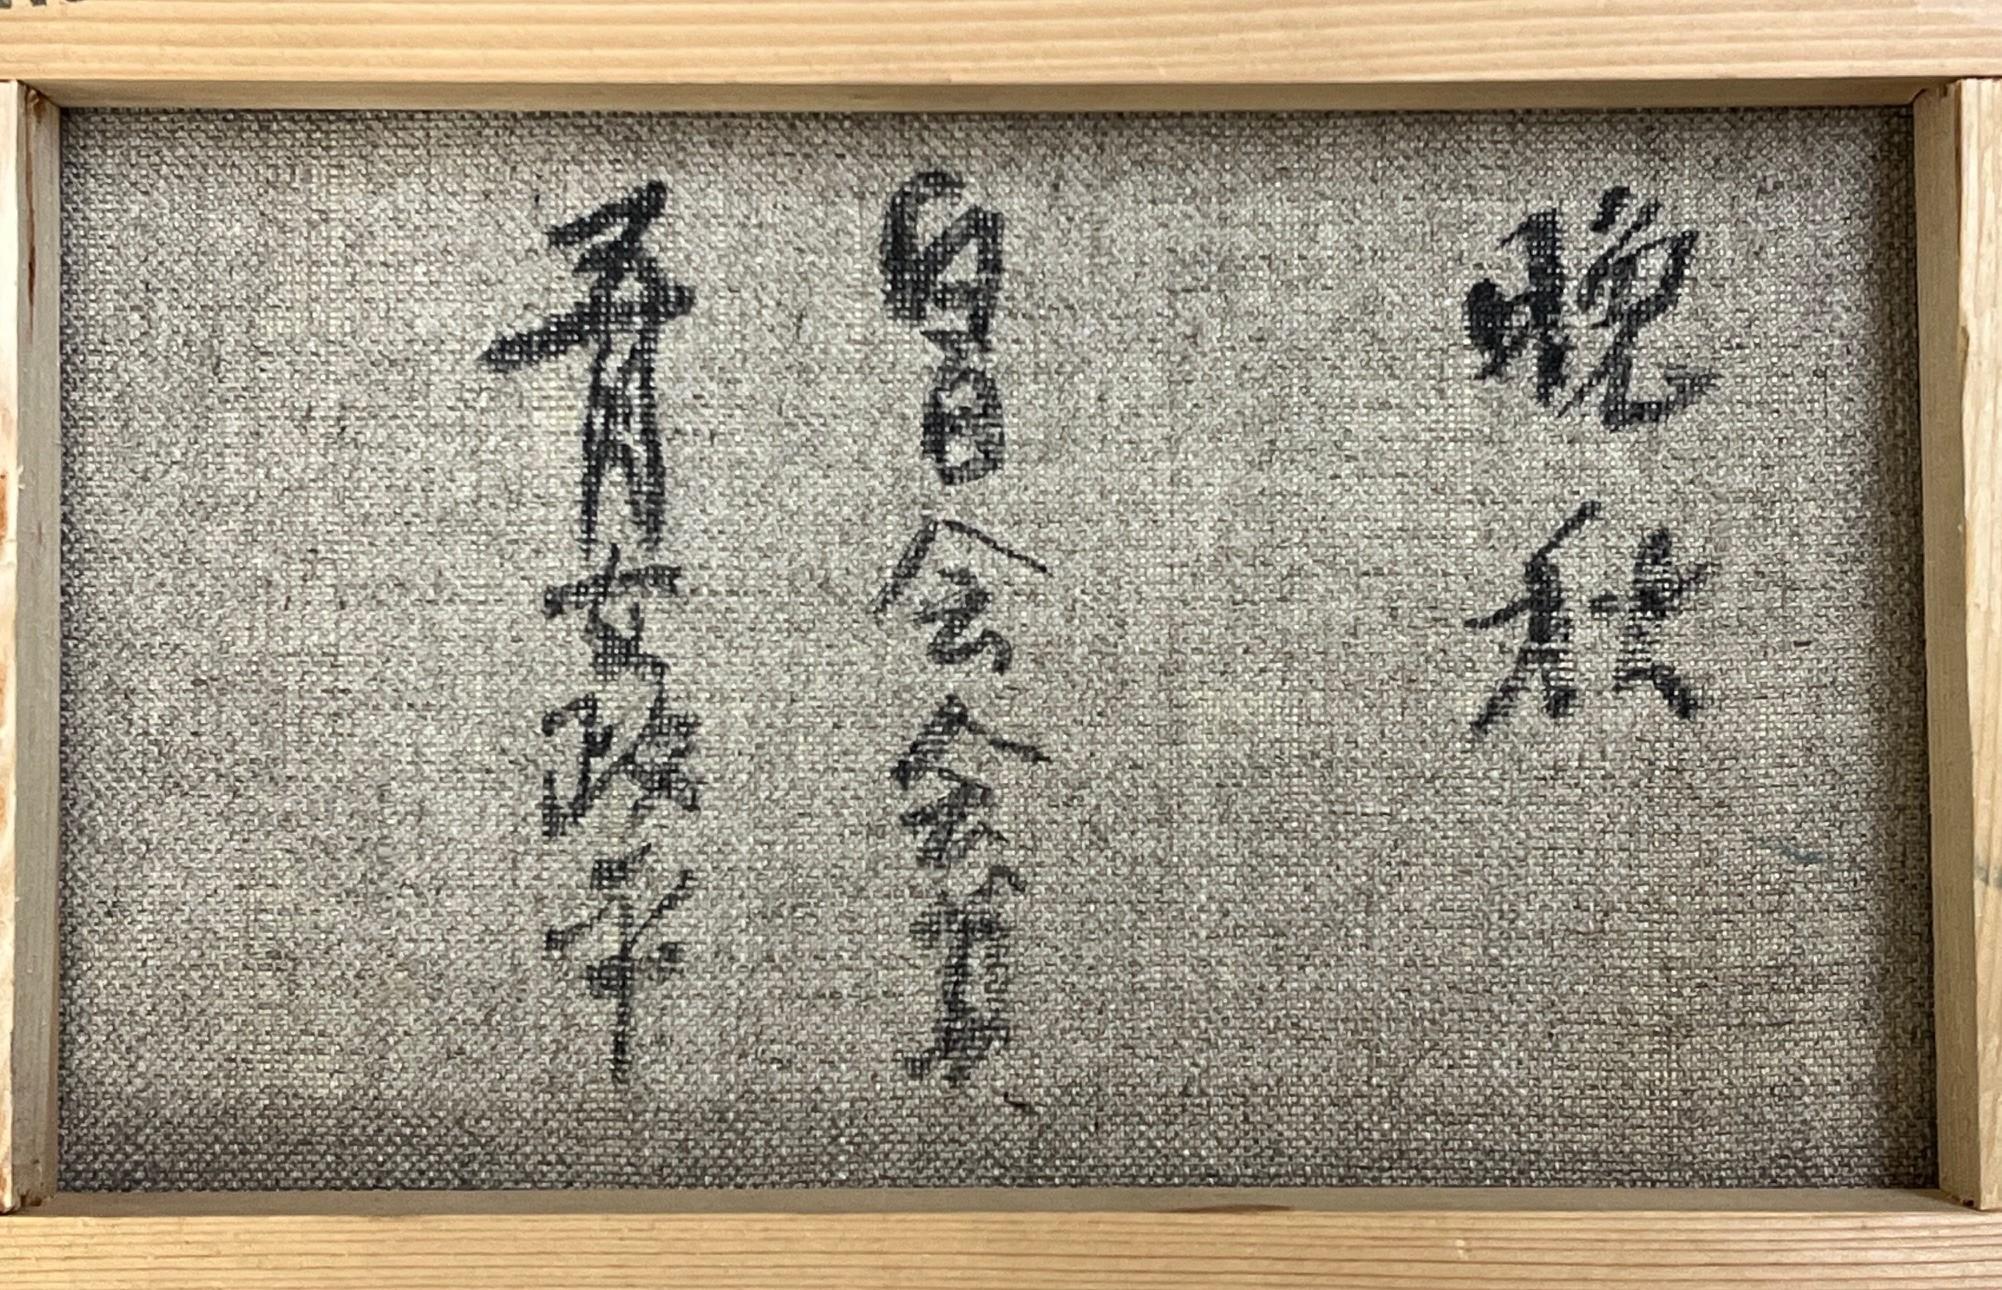 晩秋
白日会会員
青木政平